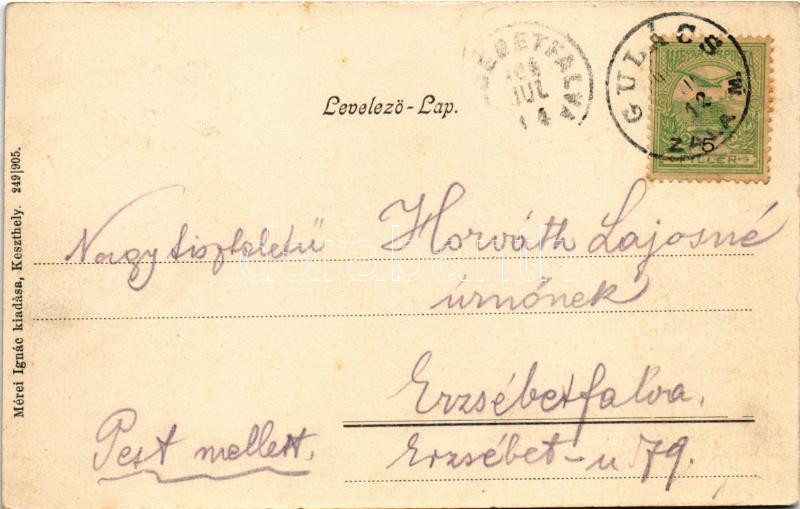 GULÁCS
ZALA M.
12
JUL
5
FILLÉR
Levelező-Lap.
Nagytiszteletű Horváth Lajosné
úrnőnek
Erzsébetfalva.
Pest mellett. Erzsébet-u 79.
Mérei Ignác kiadása, Keszthely. 249|905.
darabanth